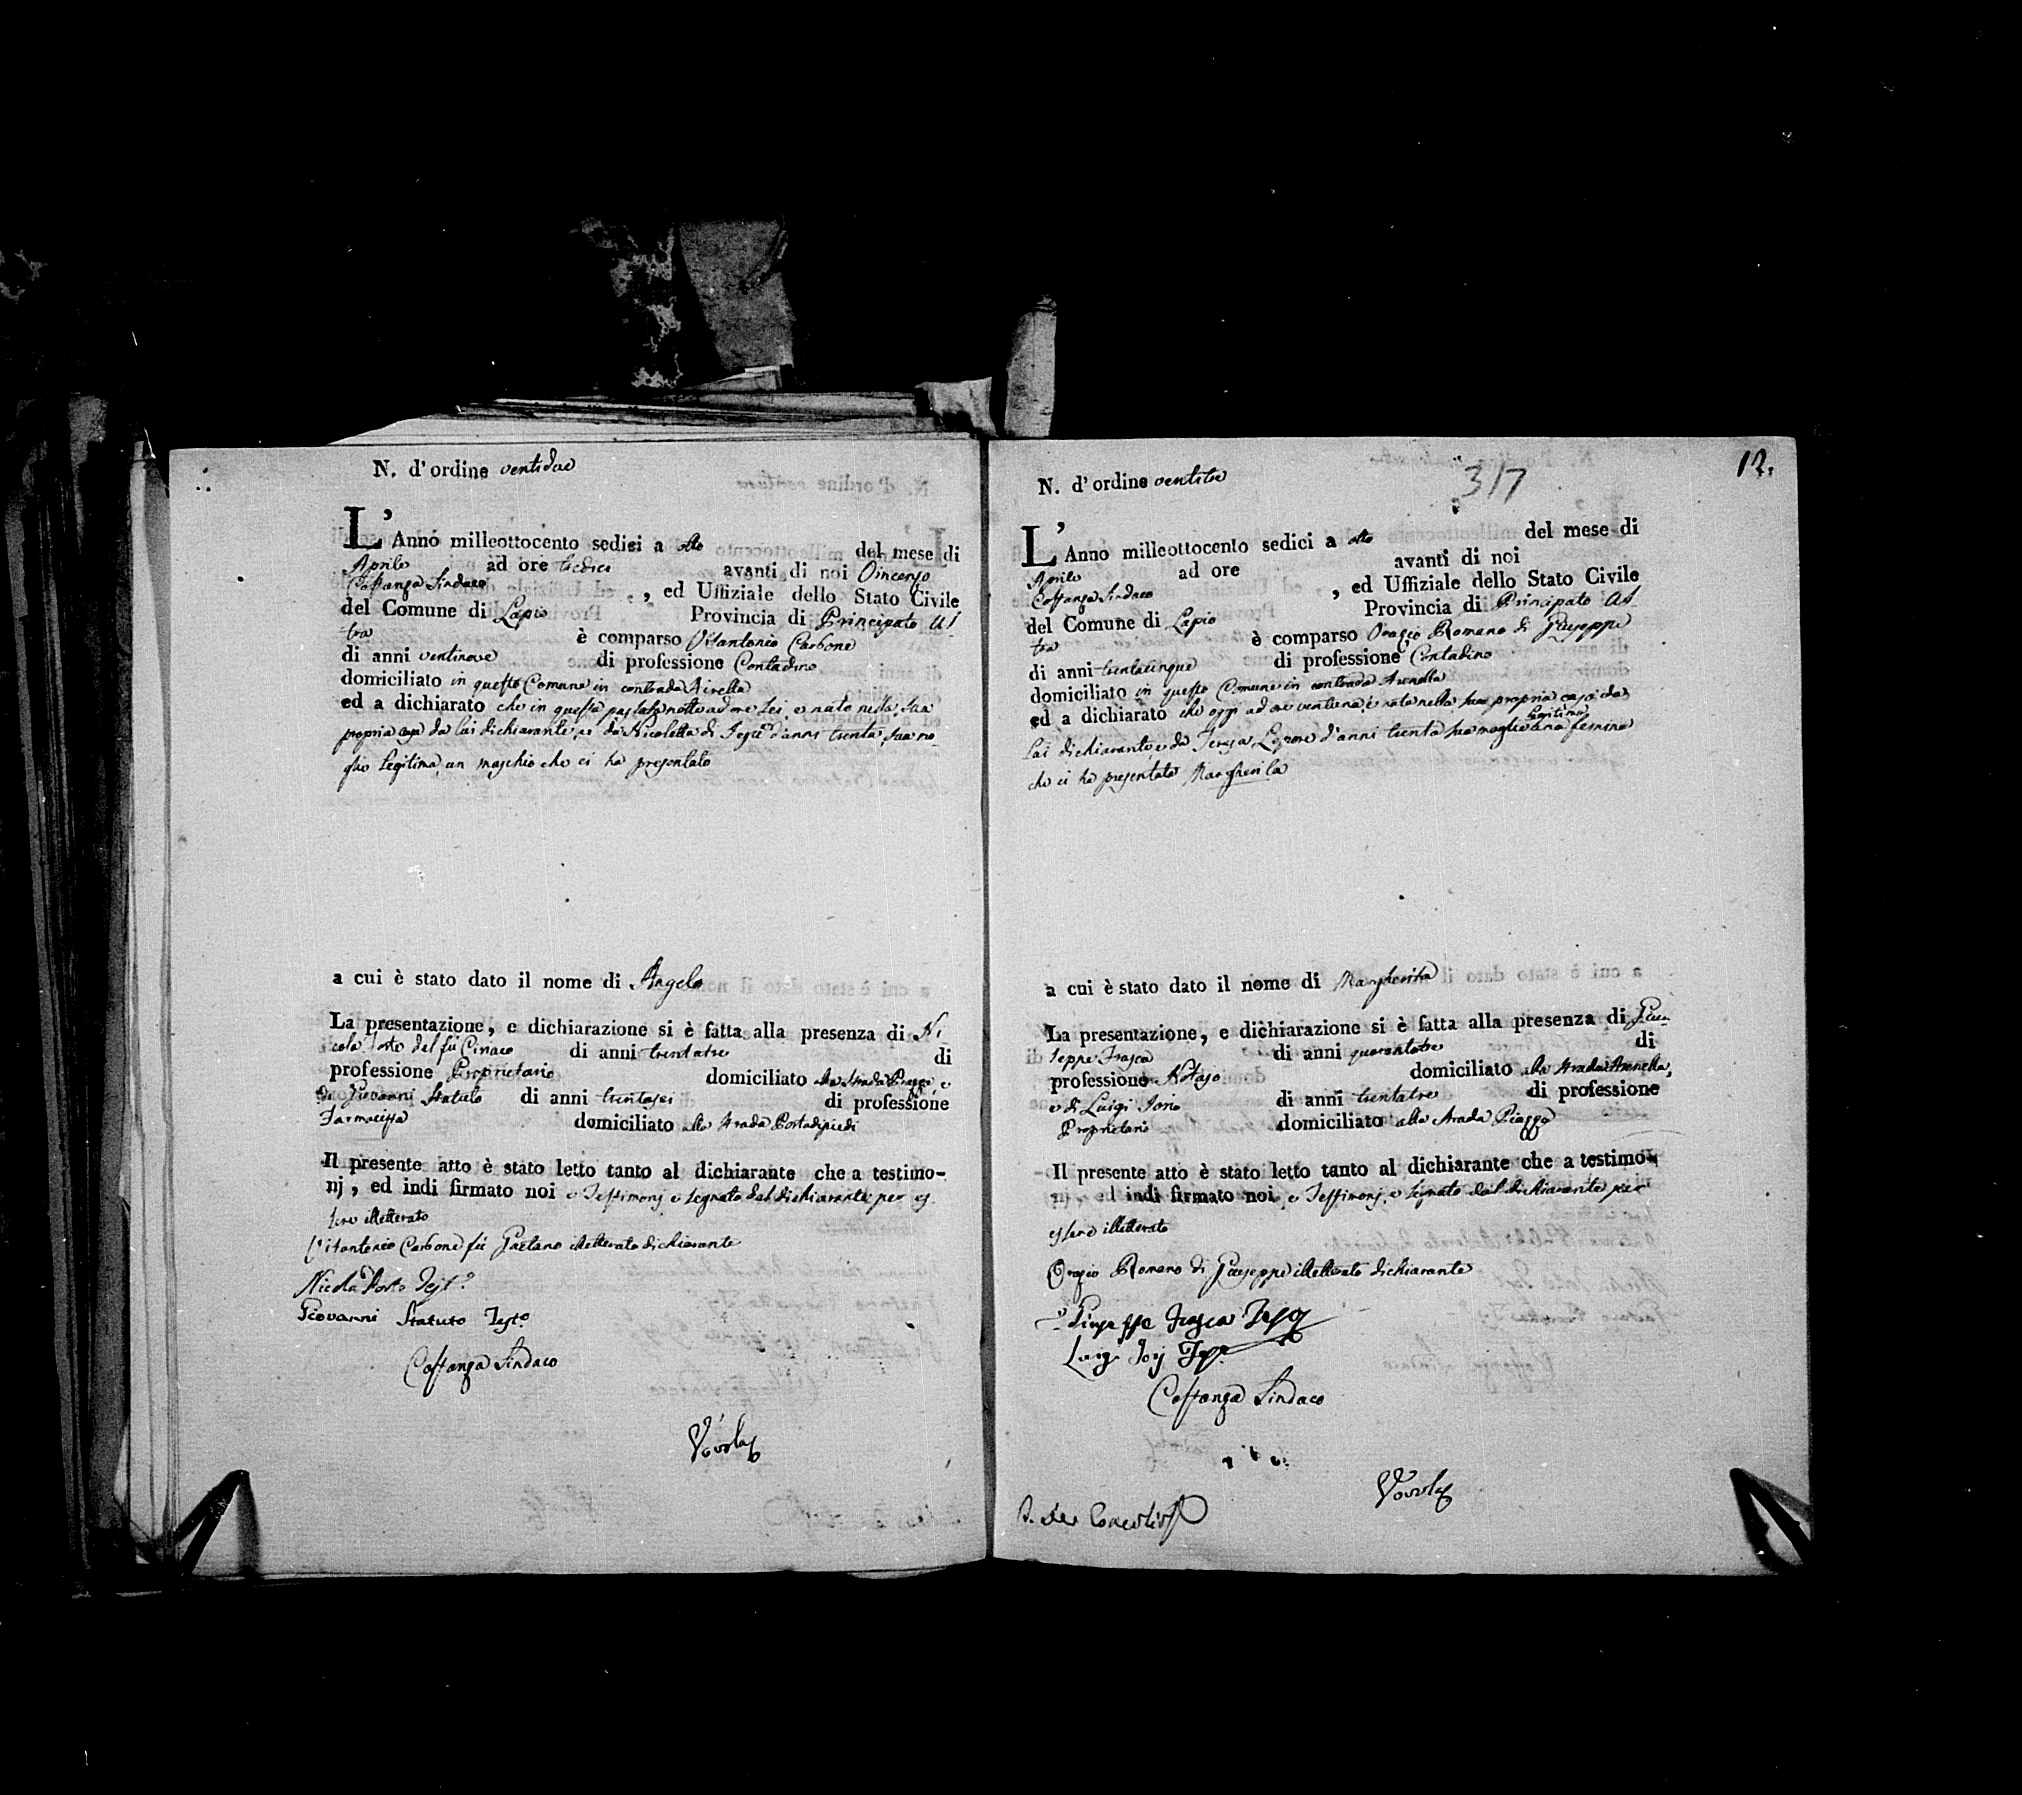 N. d'ordine ventidue
L'Anno milleottocento sedici a otto del mese di
Aprile ad ore tredici avanti di noi Vincenzo
Costanza Sindaco, ed Uffiziale dello Stato Civile
del Comune di Lapio Provincia di Principato Ul
tra è comparso Vitantonio Carbone
di anni ventinove di professione Contadino
domiciliato in questo Comune in contrada
ed a dichiarato che in questa passata notte ad ore sei, è nato nella sua
propria casa da lui dichiarante, e da Nicoletta di d'anni trenta, sua mo
glie legitima, un maschio che ci ha presentato
a cui è stato dato il nome di Angelo
La presentazione, e dichiarazione si è fatta alla presenza di Ni
cola del fù Ciriaco di anni trentatre di
professione Proprietario domiciliato alla strada Piazza, e
di Giovanni Statuto di anni trentasei di professione
Farmacista domiciliato alla strada Portadipiedi
Il presente atto è stato letto tanto al dichiarante che a testimo-
nj, ed indi firmato noi e Testimonj e segnato dal dichiarante per es
sere illetterato
Vitantonio Carbone fù Gaetano illetterato dichiarante
Nicola Testo
Giovanni Statuto Testo
Costanza Sindaco
12.
317
N. d'ordine ventitre
L'Anno milleottocento sedici a otto del mese di
Aprile ad ore avanti di noi
Costanza Sindaco, ed Uffiziale dello Stato Civile
del Comune di Lapio Provincia di Principato Ul
tra è comparso Orazio Romano di Giuseppe
di anni trentacinque di professione Contadino
domiciliato in questo Comune in contrada Arenella
ed a dichiarato che oggi ad ore ventuna, è nata nella sua propria casa da
lui dichiarante, e da Teresa Lepore d'anni trenta sua moglie legitima una femina
che ci ha presentato Margherita
a cui è stato dato il nome di Margherita
La presentazione, e dichiarazione si è fatta alla presenza di Giu-
seppe Frasca di anni quarantatre di
professione Notajo domiciliato alla strada Arenella,
e di Luigi Iorio di anni trentatre di professione
Proprietario domiciliato alla strada Piazza
Il presente atto è stato letto tanto al dichiarante che a testimo-
nj, ed indi firmato noi, e Testimonj, e segnato dal dichiarante per
essere illetterato
Orazio Romano di Giuseppe illetterato dichiarante
Giuseppe Frasca
Luigi
Costanza Sindaco